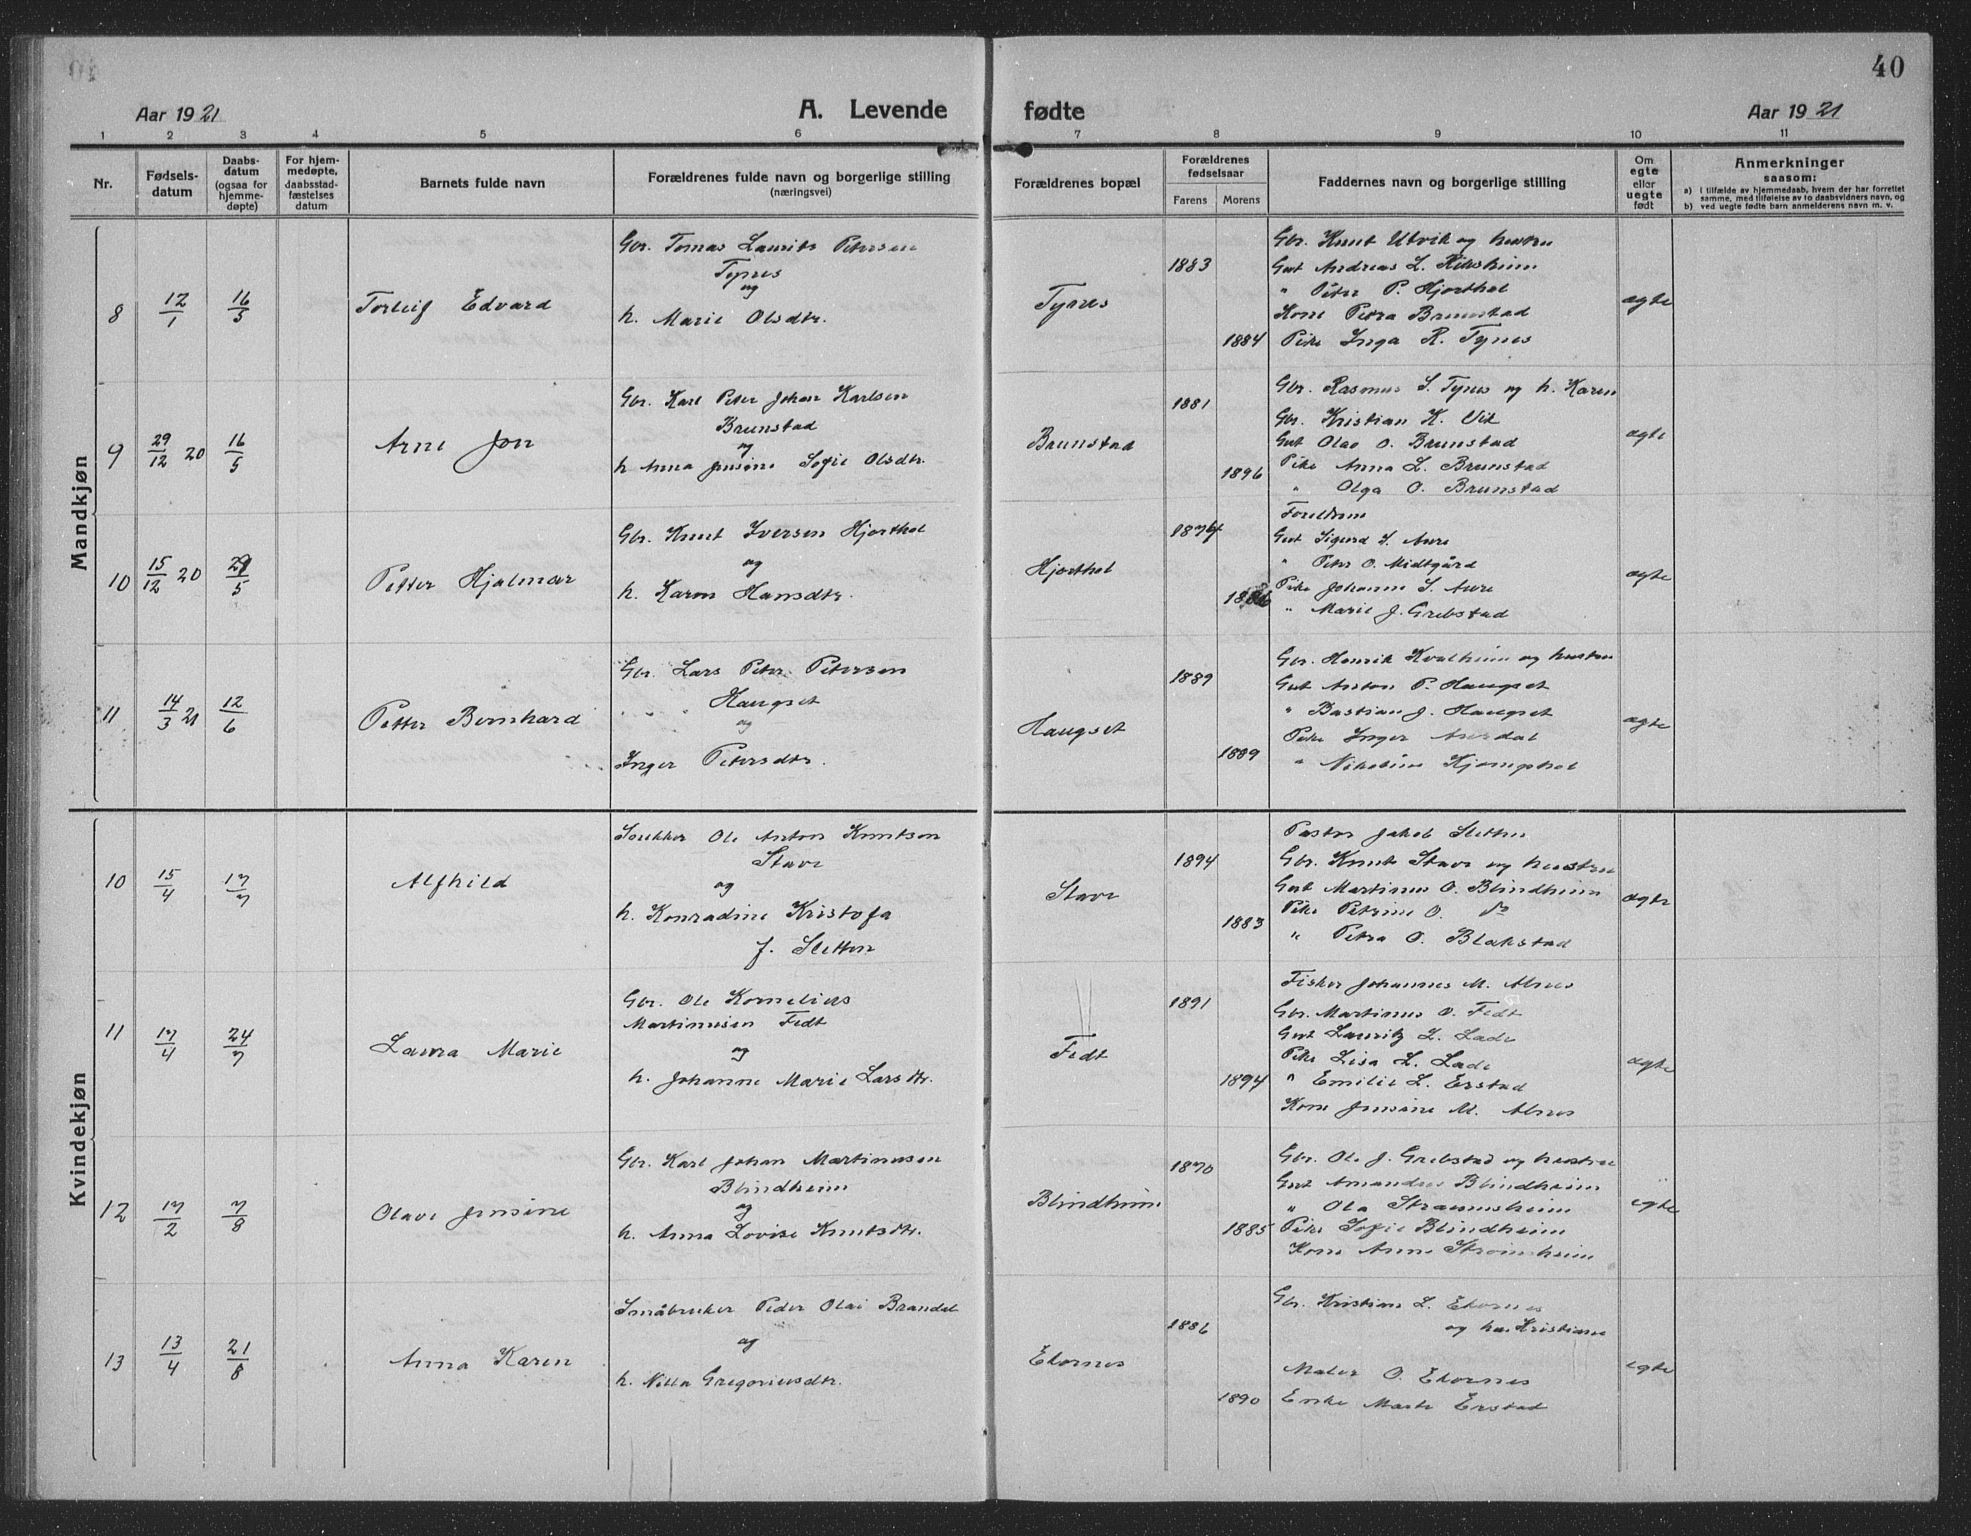 40
Aar 1921 A. Levende fødte Aar 1921
1 2 3 4 5 6 7 8 9 10 11
Nr.
Fødsels-
datum
Daabs-
datum
(ogsaa for
hjemme-
døpte)
For hjem-
medøpte,
daabsstad-
fæstelses
datum
Barnets fulde navn
Forældrenes fulde navn og borgerlige stilling
(næringsvei)
Forældrenes bopæl
Forældrenes
fødselsaar
Farens Morens
Faddernes navn og borgerlige stilling
Om
egte
eller
uegte
født
Anmerkninger
saasom:
a) i tilfælde av hjemmedaab, hvem der har forrettet
samme, med tilføielse av to daabsvidners navn, og
b) ved uegte fødte barn anmelderens navn m. v.
Mandkjøn
8
12/1
16/5
Torleif Edvard
Gbr. Tomas Laurits Petersen
Tynes
og
h. Marie Olsdtr.
Tynes
1883
1884
Gbr. Knut Utvik og hustru
Gut Andreas L. Riksheim
" Peter P. Hjorthol
Kone Petra Brunstad
Pike Inga R. Tynes
ægte
9
29/12 20
16/5
Arne Jon
Gbr. Karl Peter Johan Karlsen
Brunstad
og
h Anna Jensine Sofie Olsdtr.
Brunstad
1881
1896
Gbr. Rasmus S. Tynes og h. Karen
Gbr. Kristian K. Vik
Gut Olav O. Brunstad
Pike Anna L. Brunstad
" Olga O. Brunstad
ægte
10
15/12 20
29/5
Petter Hjalmar
Gbr. Knut Iversen Hjorthol
og
h. Karen Hansdtr.
Hjorthol
Foreldrene
Gut Sigurd S. Aure
" Peter O. Midtgård
Pike Johanne S. Aure
" Marie J. Grebstad
ægte
11
14/3 21
12/6
Petter Bernhard
Gbr. Lars Peter Petersen
Haugset
og
Inger Petersdtr.
Haugset
1889
1889
Gbr. Henrik Kvalheim og hustru
Gut Anton P. Haugset
" Bastian J. Haugset
Pike Inger Aurdal
" Nikoline
ægte
Kvindekjøn
10
15/4
17/7
Alfhild
Snekker Ole Anton Knutsen
Stave
og
h. Konradine Kristofa
J. Sletten
Stave
1894
1883
Pastor Jakob Sletten
Gbr. Knut Stave og hustru
Gut Martinus O. Blindheim
Pike Petrine O. do
" Petra O. Blakstad
ægte
11
17/4
24/7
Laura Marie
Gbr. Ole Kornelius
Martinusen Fedt
og
h. Johanne Marie Larsdtr.
Fedt
1891
1894
Fisker Johannes M. Alnes
Gbr. Martinus O. Fedt
Gut Lauritz L. Lade
Pike Lisa L. Lade
" Emilie L. Erstad
Kone Jensine M. Alnes
ægte
12
17/2
7/8
Olave Jensine
Gbr. Karl Johan Martinusen
Blindheim
og
h. Anna Lovise Knutsdtr.
Blindheim
1870
1885
Gbr. Ole J. Grebstad og hustru
Gut Amandus Blindheim
" Ola Straumsheim
Pike Sofie Blindheim
Kone Anne Strømsheim
egte
13
13/4
21/8
Anna Karen
Småbruker Peder Olai Brandal
og
h. Nella Gregoriusdtr.
Ekornes
1886
1890
Gbr. Kristian L. Ekornes
og hu. Kristiane
Maler O. Ekornes
Enke Marte Erstad
egte